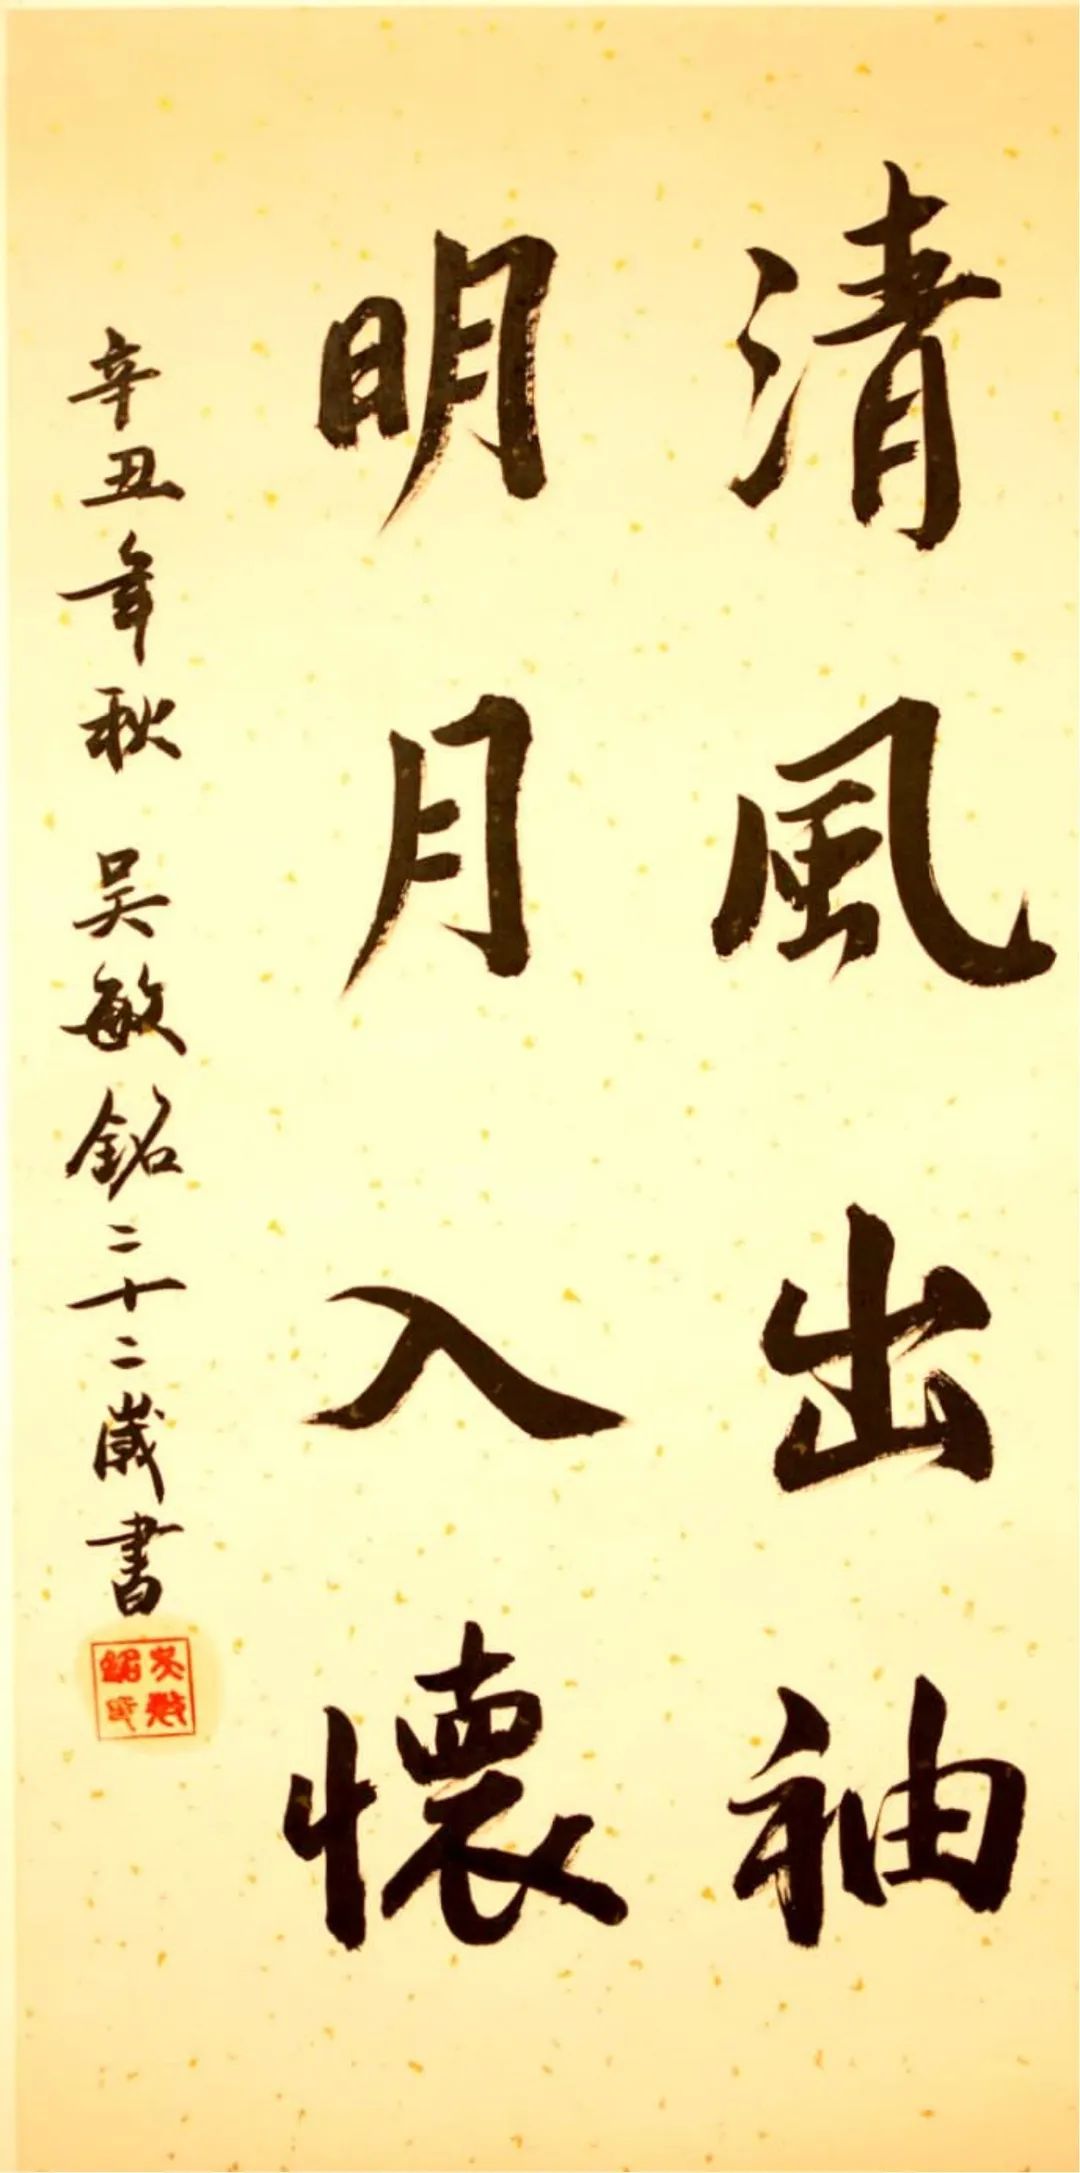 清風出袖
明月入懷
辛丑年秋吴敏銘二十二歲書